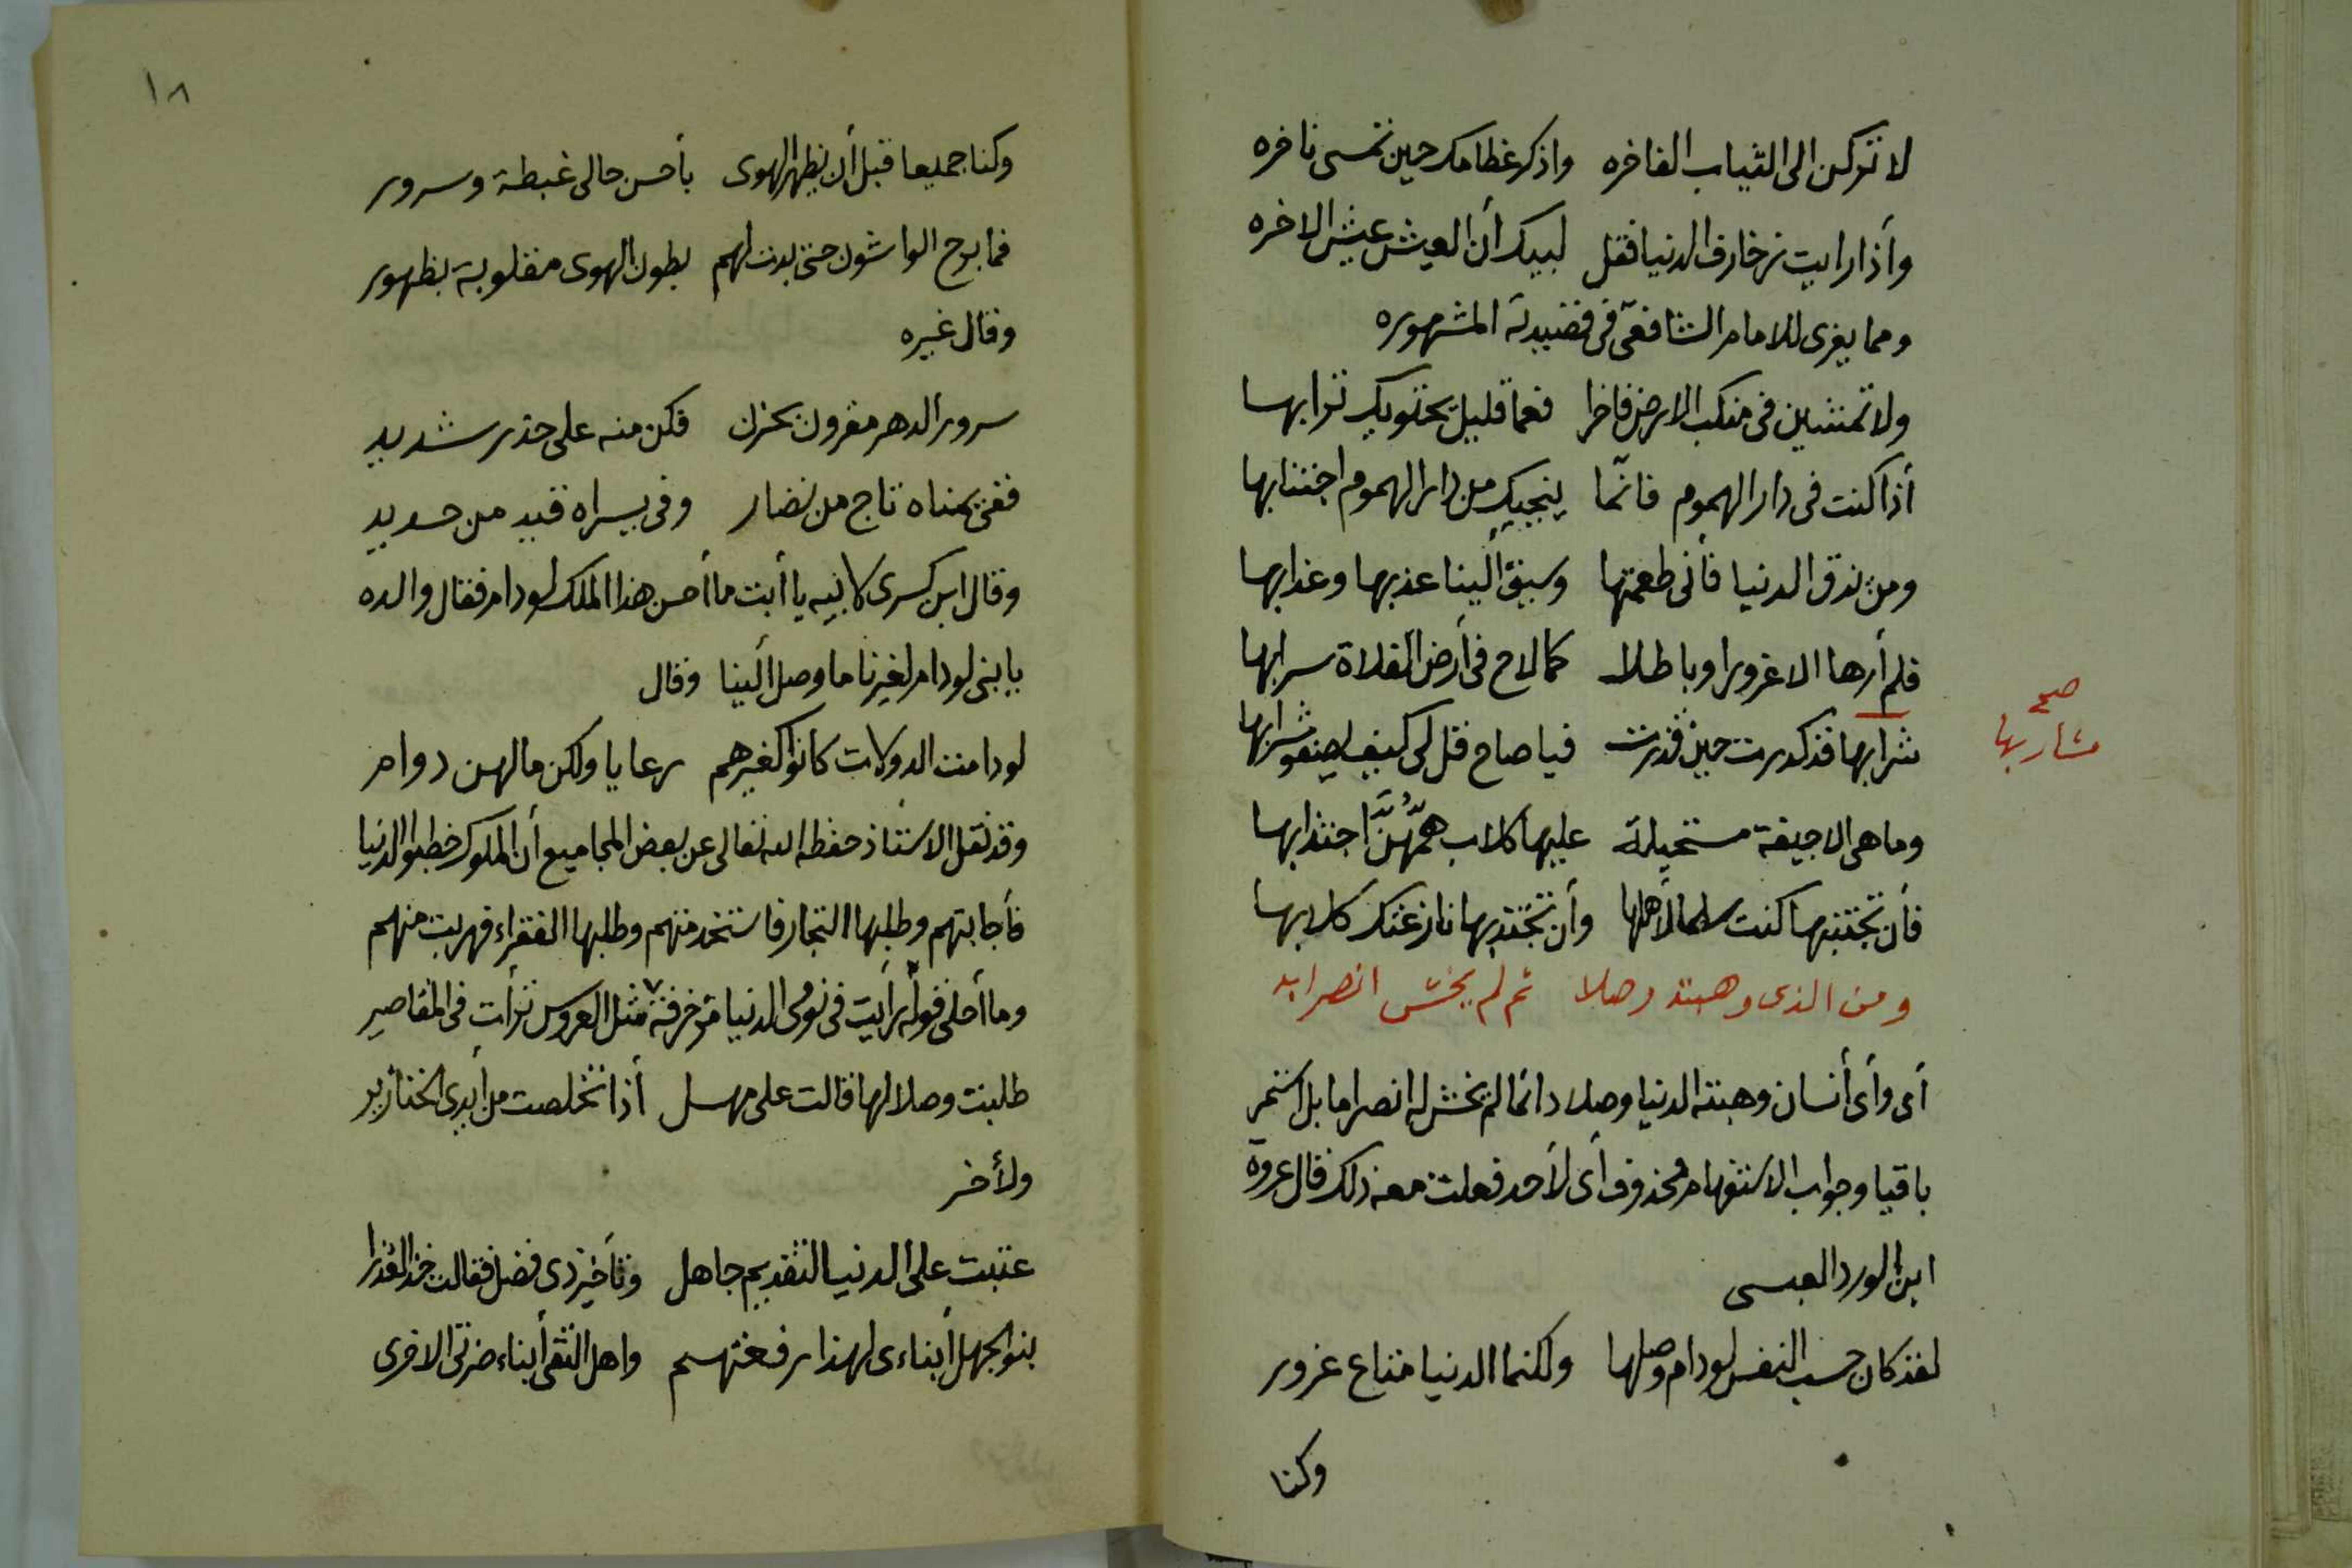 لا تركن الى الثياب الفاخره واذكر عظامك حين تمسى ناخره
وأذا رايت زخارف الدنيا فقل لبيك أن العيش عيش الاخره
ومما يعزى للامام الشافعى فى قصيدته المشهوره
ولا تمشين فى منكب الارض فاخرا فعما قليل يحتويك ترابها
أذا كنت فى دار الهموم فانّما ينجيك من دار الهموم اجتنابها
ومن يذق الدنيا فأنى طعمتها وسيق ألينا عذبها وعذابها
فلم أرها الا غرورا وباطلا كما لاح فى أرض الفلاة سرابها
شرابها قد كدرت حين قدرت فيا صاح قل لى كيف يصفو شرابها
صح
مشاربها
وما هى الا جيفة مستحيلة عليها كلاب همّهُنَّ اجتذابها
فأن تجتنبها كنت سلما لأهلها وأن تجتذبها نازعتك كلابها
ومن الذى وهبته وصلا ثم لم يخش انصرابه
أى وأى أنسان وهبته الدنيا وصلا دائما لم يخش له انصراما بل استمر
باقيا وجواب الاستفهام محذوف أى لأحد فعلت معه ذلك قال عروة
ابن الورد العبسى
لقد كان حسب النفس لو دام وصلها ولكنما الدنيا متاع غرور
وكنا
١٨
وكنا جميعا قبل أن يظهر الهوى بأحسن حالى غبطة وسرور
فما برح الواشون حتى بدت لهم بطون الهوى مقلوبة بظهور
وقال غيره
سرور الدهر مقرون بحزن فكن منه على حذر شديد
ففى يمناه تاج من نضار وفى يسراه قيد من حديد
وقال ابن كسرى لابيه يا أبت ما أحسن هذا الملك لو دام فقال والده
يا بنى لو دام لغيرنا ما وصل ألينا وقال
لو دامت الدولات كانوا كغيرهم رعايا ولكن مالهن دوام
وقد نقل الاستاذ حفظه الله تعالى عن بعض المجاميع أن الملوك خطبوا الدنيا
فأجابتهم وطلبها التجار فاستخدمتهم وطلبها الفقراء فهربت منهم
وما أحلى قوله رأيت فى نومى الدنيا مزخرفة مثل العروس تراءت فى المقاصير
طلبت وصلا لها قالت على مهل أذا تخلصت من أيدى الخنازير
ولأخر
عتبت على الدنيا لتقديم جاهل وتأخير ذى فضل فقالت خذ العذرا
بنو الجهل أبناءى لهذا رفعتهم واهل التقى أبناء ضرتى الاخرى